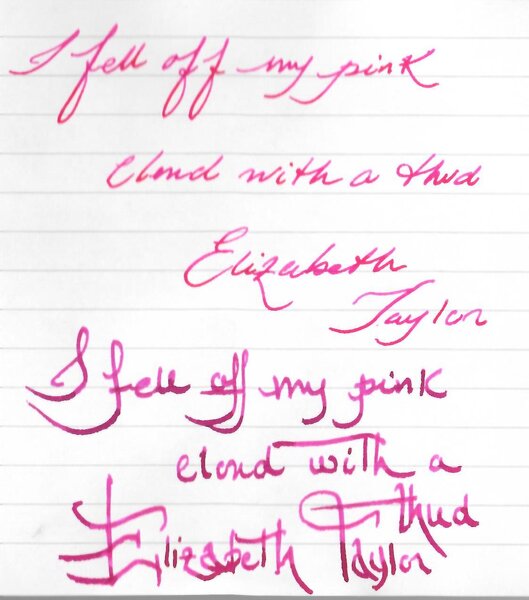 I fell off my pink
cloud with a thud
Elizabeth
Taylor
I fell off my pink
cloud with a
thud
Elizabeth Taylor